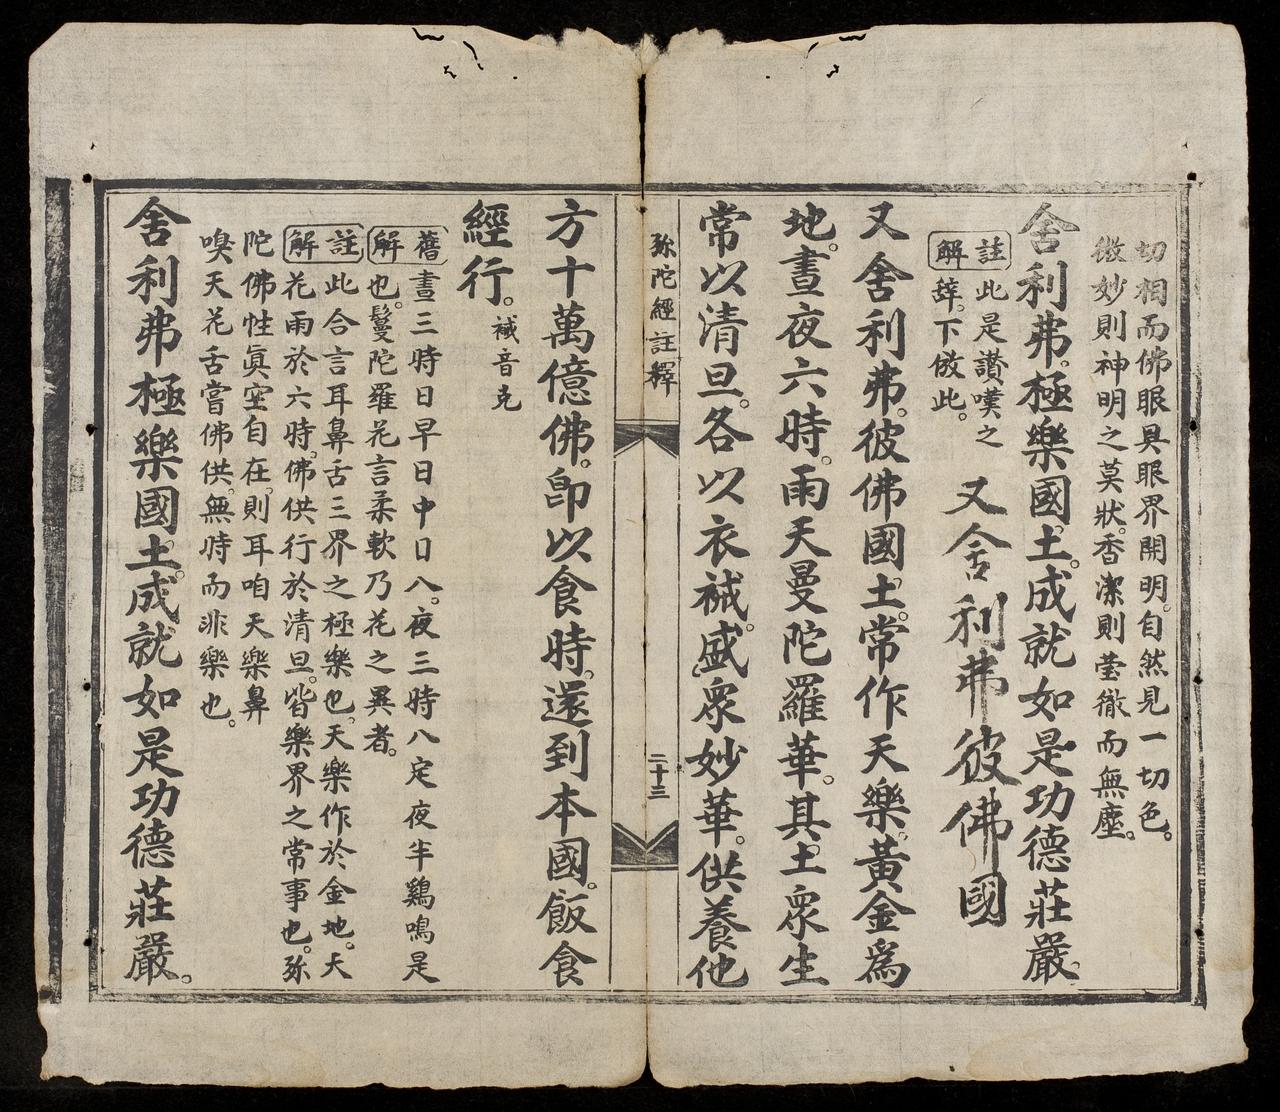 切相而佛眼具眼界開明。自然見一切色。
微妙則神明之莫狀。香潔則瑩徹而無塵。
舍利弗。極樂國土。成就如是功德莊嚴。
註解
此是讃嘆之
辞。下倣此。
又舍利弗彼佛國
又舍利弗。彼佛國土。常作天樂。黃金爲
地。晝夜六時。雨天曼陀羅華。其土衆生
常以清旦。各以衣裓。盛衆妙華。供養他
弥陀經註釋
二十三
方十萬億佛。卽以食時。還到本國。飯食
經行。裓音克
舊解
晝三時日早日中日入。夜三時人定夜半鷄鳴是
也。鬘陀羅花言柔軟乃花之異者。
註解
此合言耳鼻舌三界之極樂也。天樂作於金地。天
花雨於六時。佛供行於清旦。皆樂界之常事也。弥
陀佛性眞空自在。則耳咱天樂鼻
嗅天花舌嘗佛供。無時而非樂也。
舍利弗極樂國土。成就如是功德莊嚴。